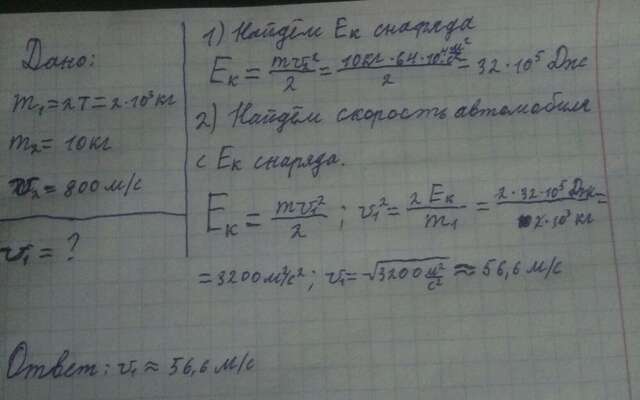 Дано:
m₁=2т=2·10³кг
m₂=10кг
v₂=800м/с
v₁=?
1) Найдём Eк снаряда
Eк=mv₂²/2=10кг·64·10⁴м²/с²/2=32·10⁵Дж
2) Найдём скорость автомобиля
с Eк снаряда.
Eк=mv₁²/2; v₁²=2Eк/m₁=2·32·10⁵Дж/2·10³кг=
=3200м²/с²; v₁=√3200м²/с²≈56,6м/с
Ответ: v₁≈56,6м/с